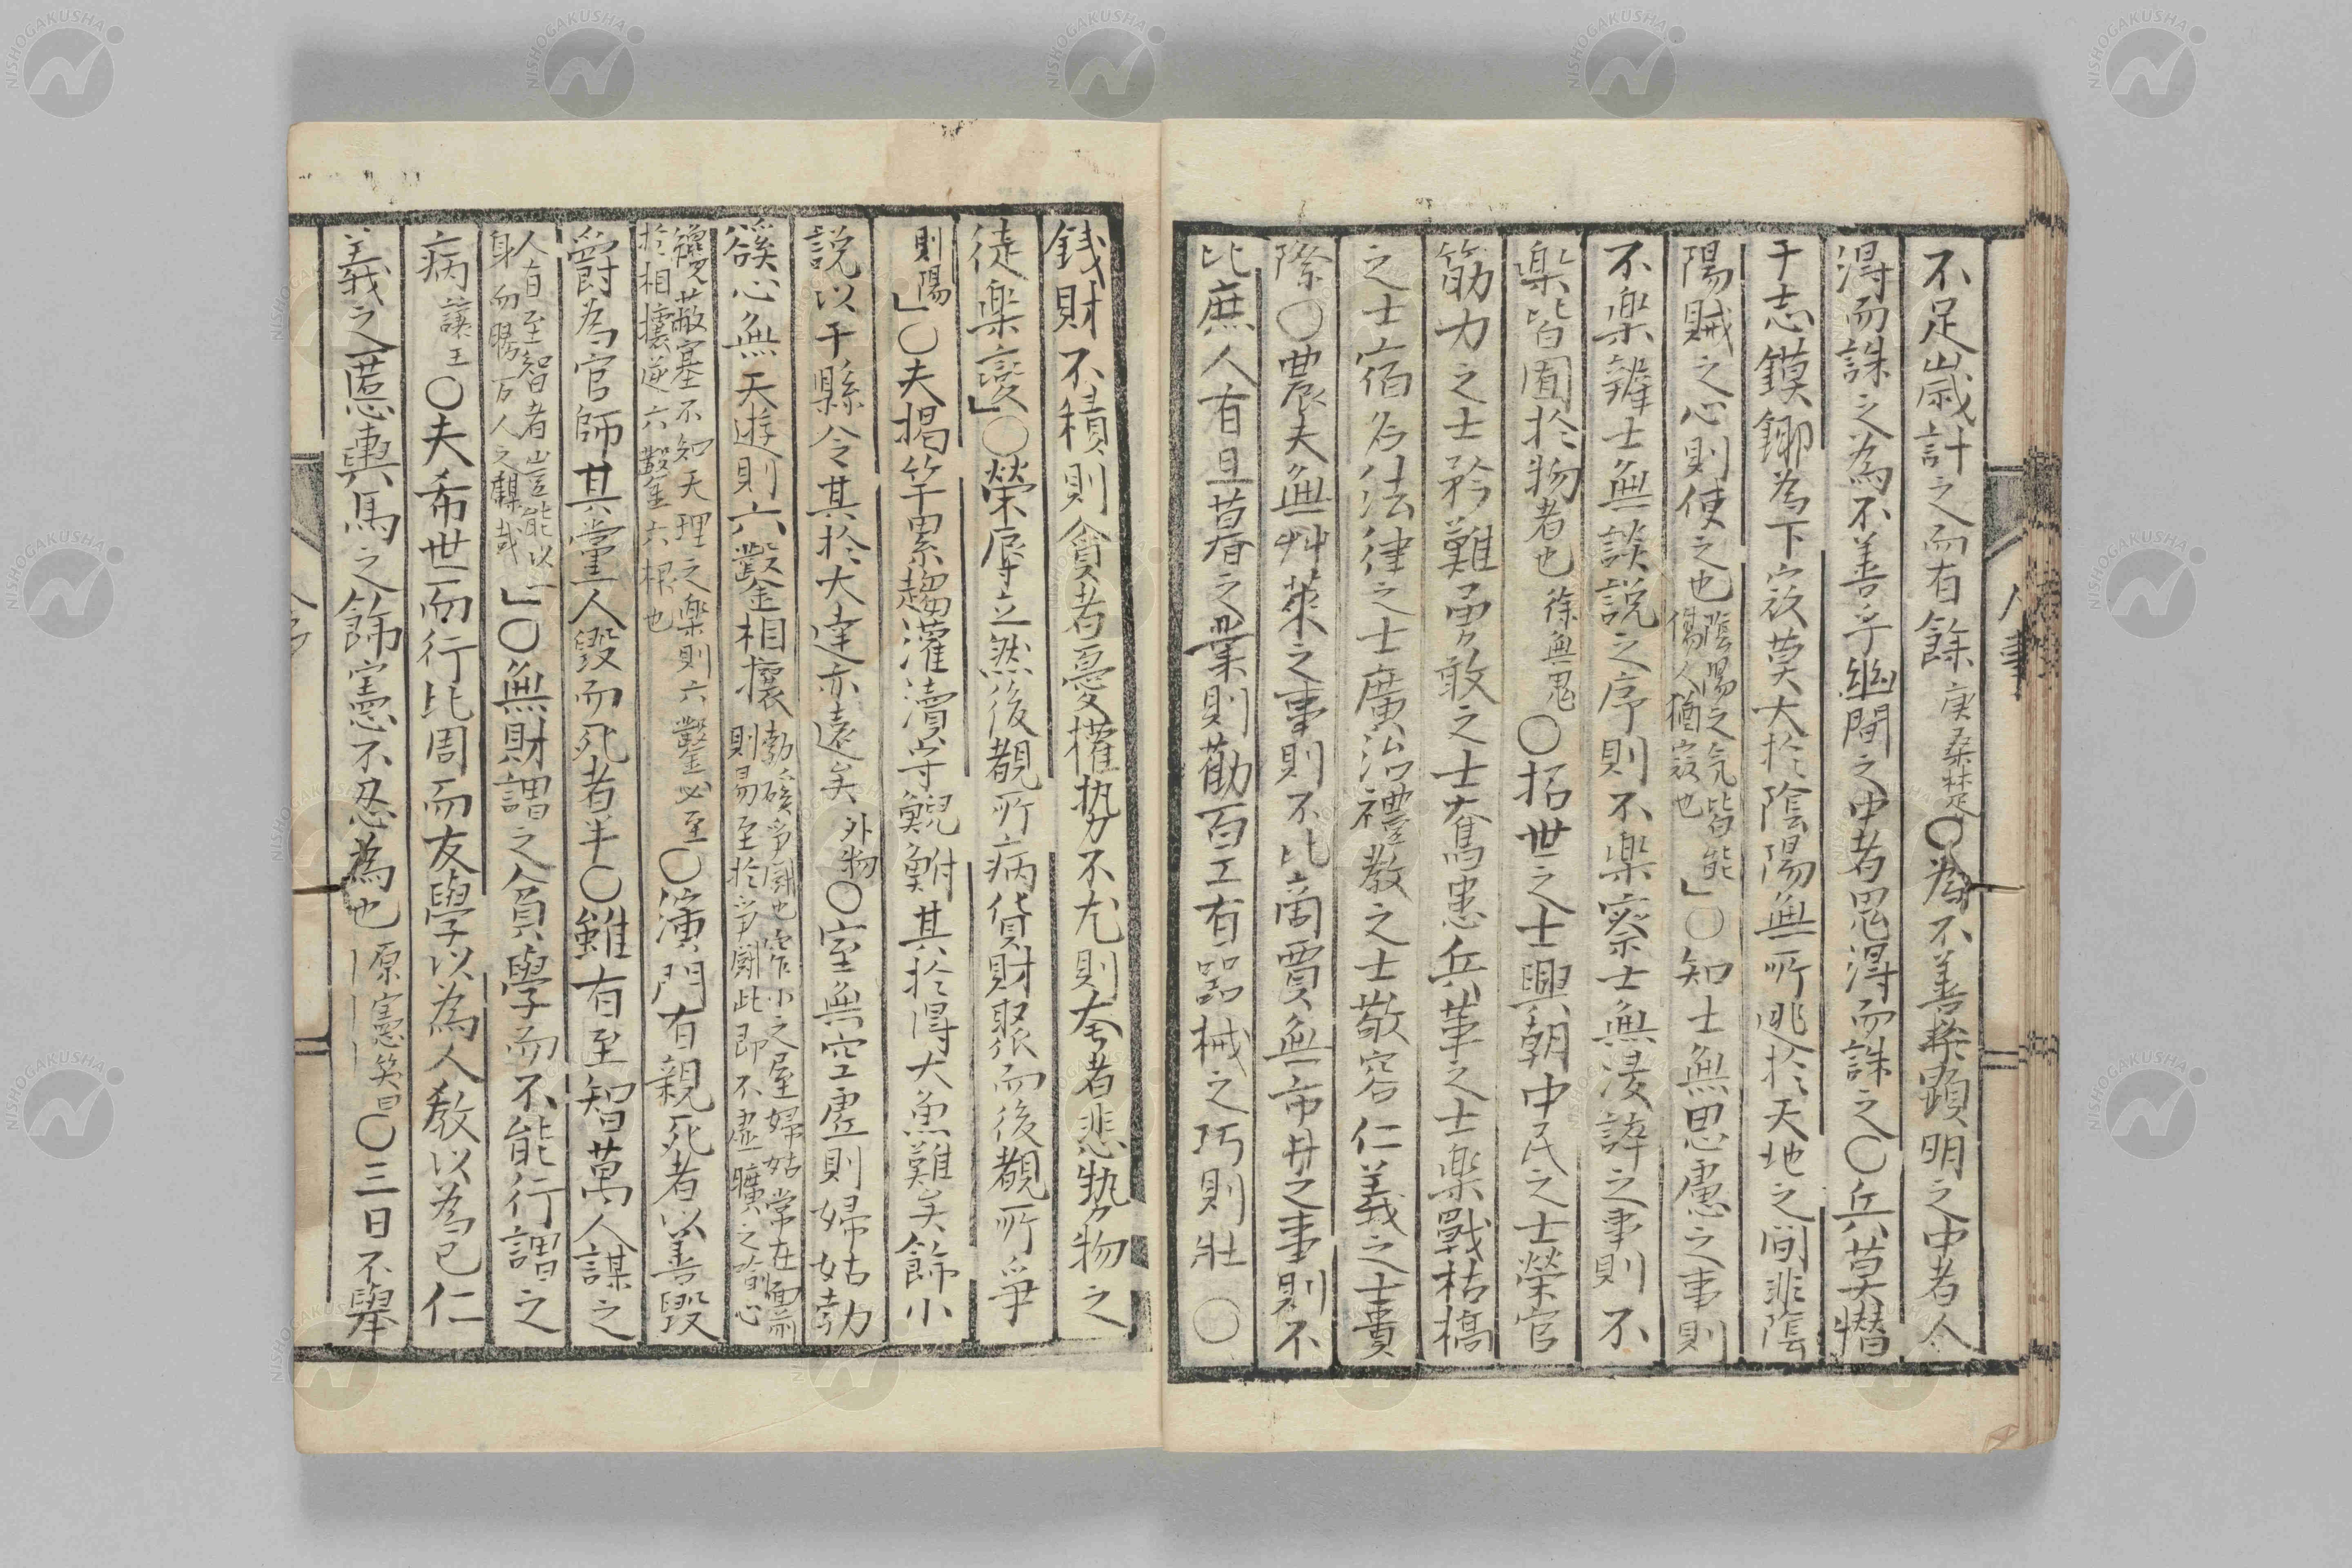 人事
不足歳計之而有餘庚桑楚〇為不善乎顕明之中者人
得而誅之為不善乎幽間之中者鬼得而誅之〇兵莫憯
于志鏌鋣為下宼莫大於陰陽無所逃於天地之间非陰
陽賊之心則使之也陰陽之气皆能傷人猶宼也」〇知士無思慮之事則
不楽辯士無談説之序則不楽察士無淩誶之事則不
楽皆囿於物者也徐無鬼〇招世之士興朝中民之士榮官
筋力之士矜難勇敢之士奮患兵革之士楽戰枯槁
之士宿名法律之士廣治禮教之士敬容仁義之士貴
際〇農夫無艸萊之事則不比商賈無市井之事則不
比庶人有旦暮之業則勸百工有器械之巧則壮〇
錢財不積則貪者憂權势不尤則夸者悲勢物之
徒楽変」〇榮辱立然後覩所病貨財聚而後覩所爭
則陽」〇夫揭竿累趨灌瀆守鯢鮒其於得大魚難矣飾小
説以干縣令其於大達亦遠矣外物〇室無空虚則婦姑勃
谿心無天遊則六鑿相攘勃磎争闘也窄小之屋婦姑常在面前則易至於争闘此即不虚曠之喩心
獶蔽塞不知天理之楽則六鑿必至於相攘逆六鑿六根也〇演門有親死者以善毀
爵為官師其黨人毀而死者半〇雖有至智萬人謀之
人有至智者豈能以一身而勝万人之謀哉」〇無財謂之貧學而不能行謂之
病讓王〇夫希世而行比周而友學以為人教以為己仁
義之慝輿馬之飾憲不忍為也原憲笑曰〇三日不舉